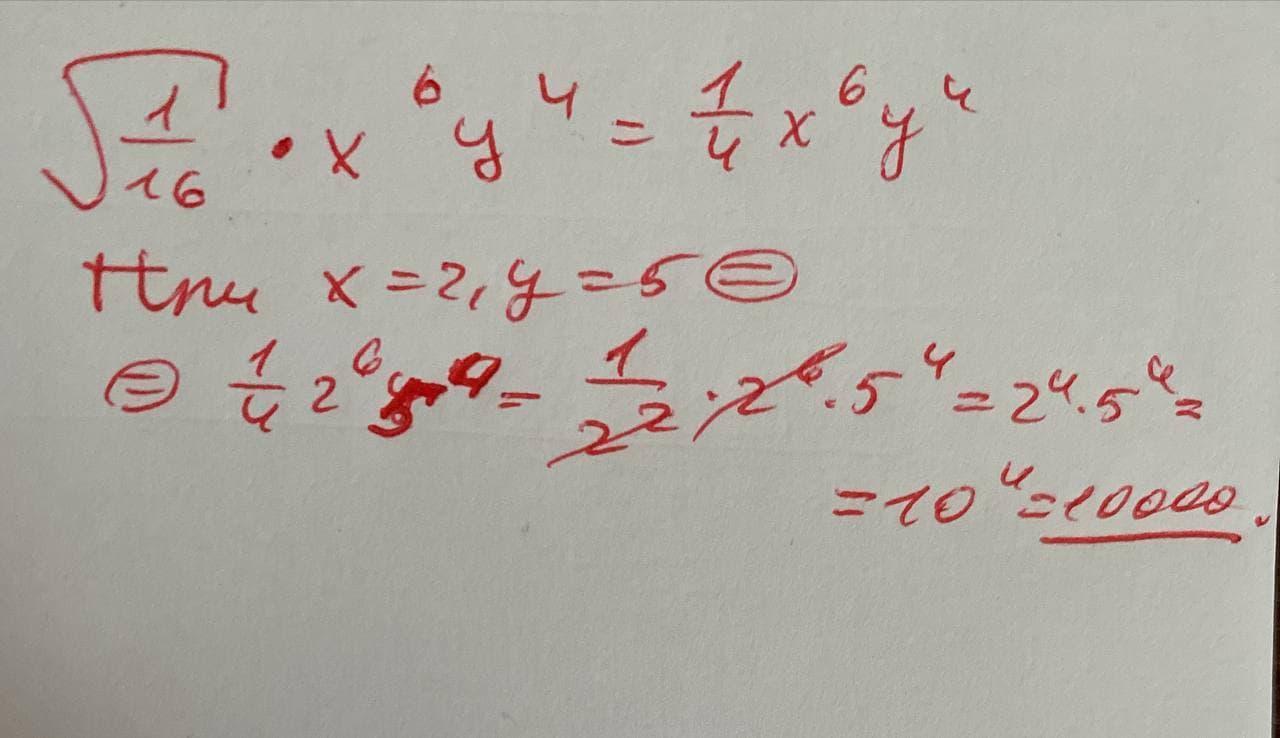 √(1/16) · x⁶y⁴ = 1/4 x⁶y⁴
При x = 2, y = 5 ⊜
⊜ 1/4 2⁶ 5⁴ = 1/2² · 2⁶ · 5⁴ = 2⁴ · 5⁴ =
= 10⁴ = 10000.